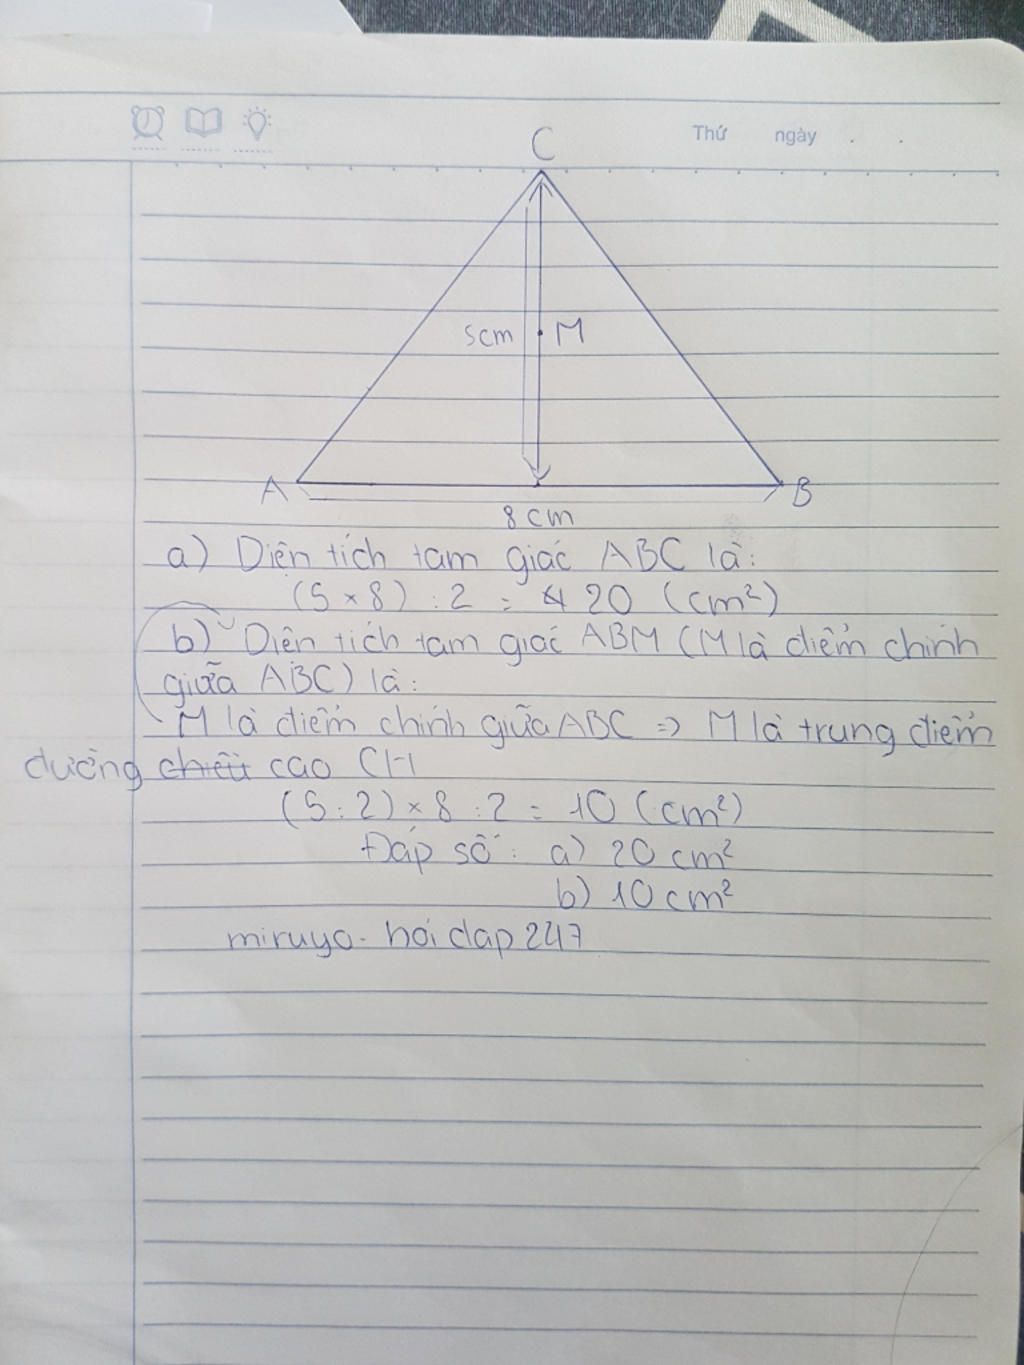 Thứ ngày . .
C
5cm M
A B
8cm
a) Diện tích tam giác ABC là:
(5 x 8) : 2 = 20 (cm²)
b) Diện tích tam giác ABM (M là điểm chính
giữa ABC) là:
M là điểm chính giữa ABC => M là trung điểm
đường chiều cao CH
(5 : 2) x 8 : 2 = 10 (cm²)
Đáp số : a) 20 cm²
b) 10 cm²
miruyo - hoidap247